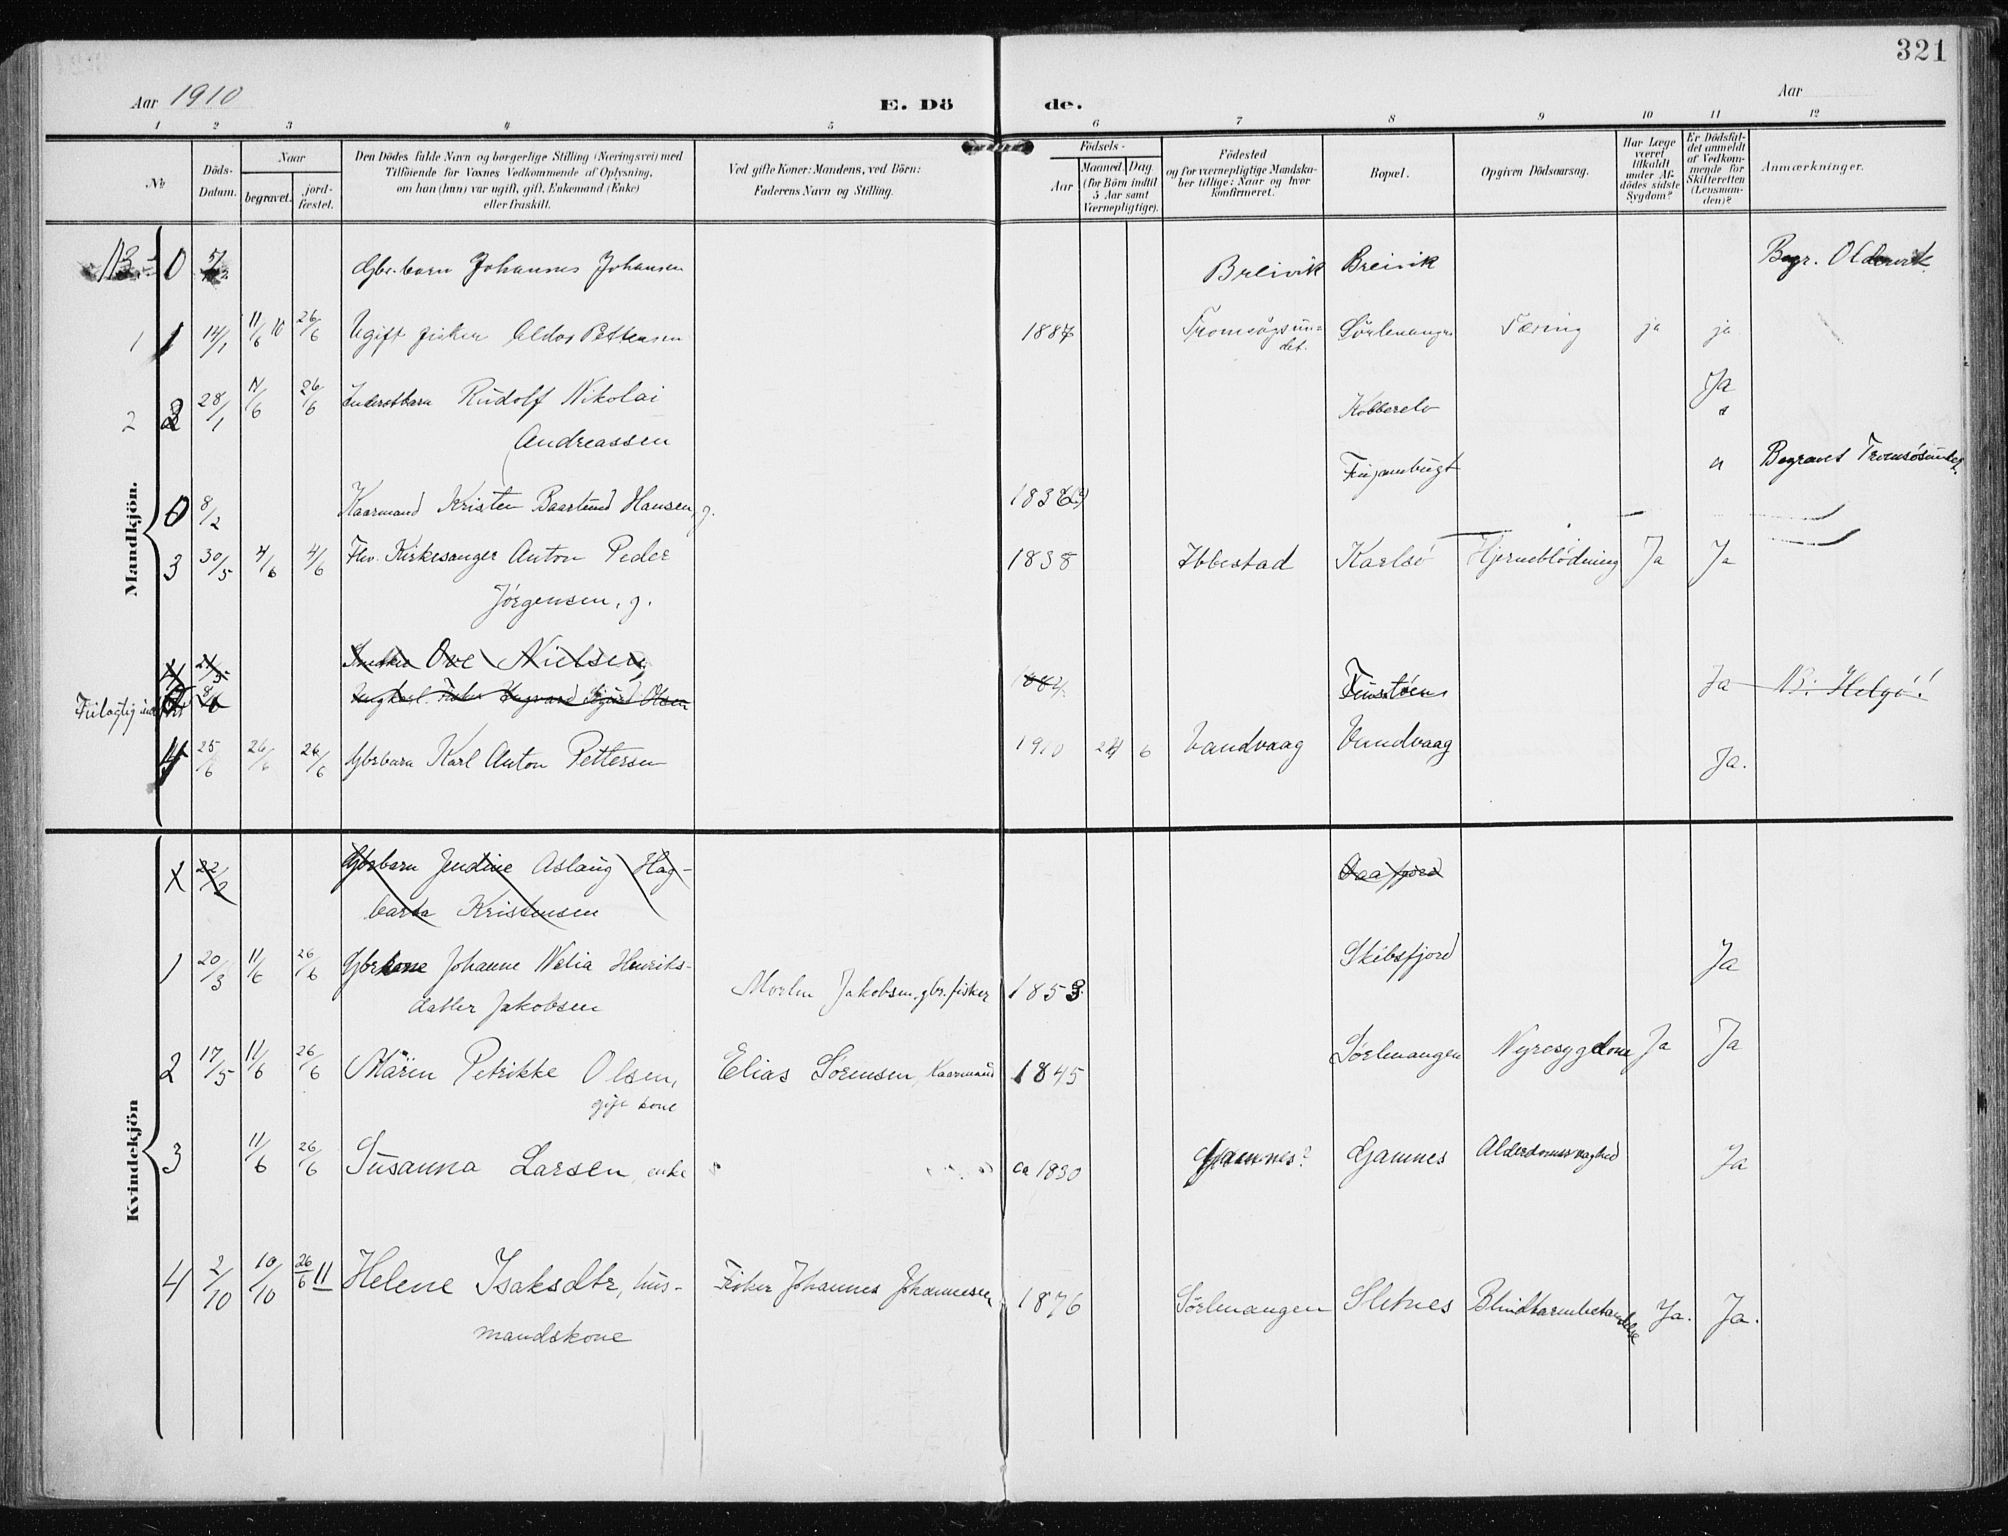 321
Aar 1910
E. Dö de.
Aar
1 2 3 4 5 6 7 8 9 10 11 12
No
Döds-Datum.
Naar
begravet.
jord-fæstet.
Den Dödes fulde Navn og borgerlige Stilling (Næringsvei) med
Tilföiende for Voxnes Vedkommende af Oplysning,
om han (hun) var ugift, gift, Enkemand (Enke)
eller fraskilt.
Ved gifte Koner: Mandens, ved Börn:
Faderens Navn og Stilling.
Födsels-
Aar
Maaned Dag
(for Börn indtil
5 Aar samt
Værnepligtige).
Födested
og for værnepligtige Mandsku-
ber tillige: Naar og hvor
konfirmeret.
Bopæl.
Opgiven Dödsaarsag.
Har Læge
været
tilkaldt
under Af-
dödes sidste
Sygdom?
Er Dödsfal-
det anmeldt
af Vedkom-
mende for
Skifteretten
(Lensman-
den)?
Anmærkninger.
Mandkjön.
0 Gbr.barn Johannes Johansen Breivik Breivik Begr. Oldervik
1 1 14/1 11/6 10 26/6 Ugift fisker Aldor Pettersen 1887 Tromsøysun-
det. Sörlenangen Tæring ja ja
2 2 28/1 11/6 26/6 Inderstbarn Rudolf Nikolai
Andreassen Kobberelv Ja
0 8/2 Kaarmand Kristen Baarlund Hansen, g. 1836(?) Finjambugt " Begravet Tromsøsundet
3 30/5 4/6 4/6 Fhv. Kirkesanger Anton Peder
Jörgensen, g. 1838 Ibbestad Karlsö Hjerneblödning Ja Ja
4 21/5 Ove Nielsen
0 8/6 Ungkarl. Fisker Ingvard Sigurd Olsen 1882 Ja NB: Helgö!
4 25/6 26/6 26/6 Gbrbarn Karl Anton Pettersen 1910 24 6 Vandvaag Vandvaag Ja.
Kvindekjön
1 22/2 Gbrbarn Jendine Aslaug Hag-
barda Kristensen
1 20/3 11/6 26/6 Gbrkone Johanne Nelia Henriks-
datter Jakobsen Morten Jakobsen, gbr. fisker 1853 Skibsfjord Ja
2 17/5 11/6 26/6 Maren Petrikke Olsen,
gift kone Elias Sörensen, Kaarmand 1845 Sörlenangen Nyresygdom Ja Ja
3 11/6 26/6 Susanna Larsen, enke ca 1830 Gamnes? Gamnes Alderdomssvaghed Ja
4 2/10 10/10 26/6 11 Helene Isaksdtr, hus-
mandskone Fisker Johannes Johannesen 1876 Sörlenangen Sletnes Blindtarmbetændelse Ja. Ja.